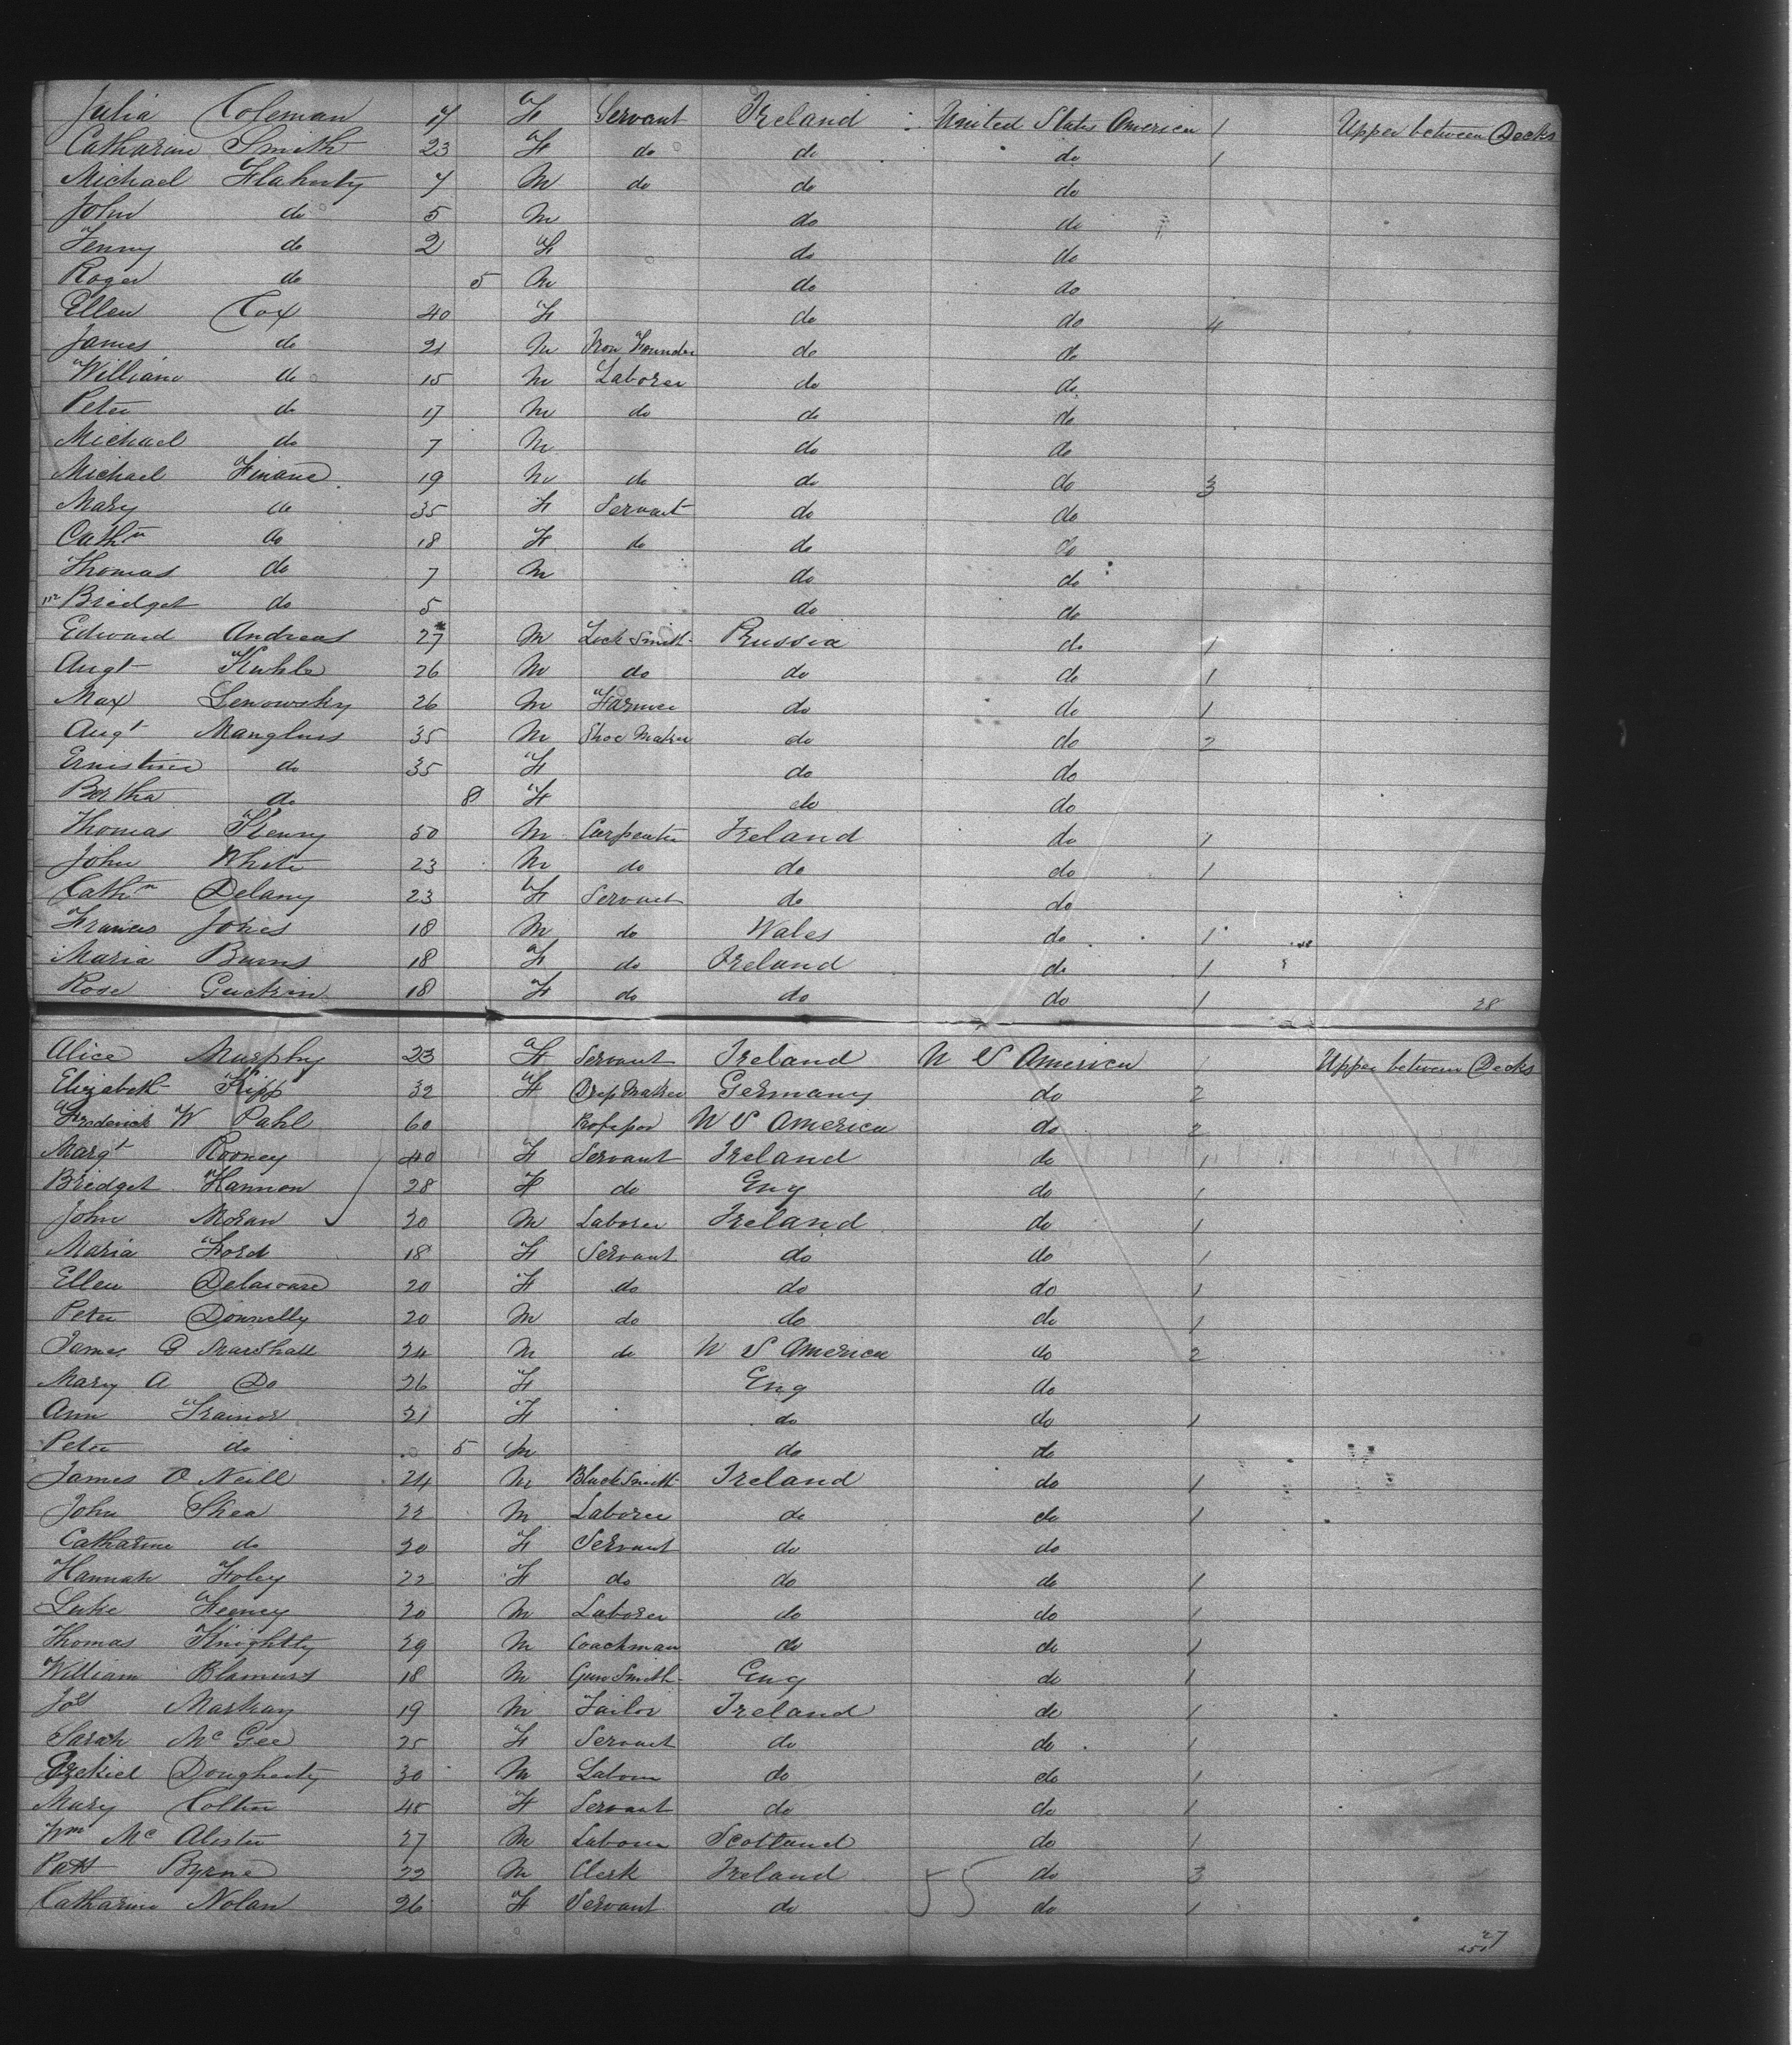 Julia Coleman 17 F Servant Ireland United States America 1 Upper between Decks
Catharine Smith 23 F do do do 1
Michael Flaherty 7 M do do do
John do 5 M do do
Jenny do 2 F do do
Roger do 5 M do do
Ellen Cox 40 F do do 4
James do 21 M Iron Founder do do
William do 15 M Laborer do do
Peter do 17 M do do do
Michael do 7 M do do
Michael Finane 19 M do do do 3
Mary do 35 F Servant do do
Cathn do 18 F do do do
Thomas do 7 M do do
Bridget do 5 do do
Edward Andreas 27 M Lock Smith Prussia do 1
Augt Kuhle 26 M do do do 1
Max Lenowsky 26 M Farmer do do 1
Augt Manglurs 35 M Shoe Maker do do 2
Ernistine do 35 F do do
Bertha do 8 F do do
Thomas Kenny 30 M Carpenter Ireland do 1
John White 23 M do do do 1
Cathn Delany 23 F Servant do do
Francis Jones 18 M do Wales do 1
Maria Burns 18 F do Ireland do 1
Rose Guckrin 18 F do do do 1
28
Alice Murphy 23 F Servant Ireland U S America 1 Upper between Decks
Elizabeth Kipp 32 F Dress Maker Germany do 2
Frederick W Pahl 60 Professor U S America do 2
Margt Rooney 40 F Servant Ireland do 1
Bridget Hannon 28 F do Eng do 1
John Moran 30 M Laborer Ireland do 1
Maria Ford 18 F Servant do do 1
Ellen Delaware 20 F do do do 1
Peter Donnelly 20 M do do do 1
James G Marshall 24 M do U S America do 2
Mary A Do 26 F Eng do
Ann Trainor 21 F do do 1
Peter do 5 M do do
James O Neill 24 M Black Smith Ireland do 1
John Shea 22 M Laborer do do 1
Catharine do 20 F Servant do do
Hannah Foley 22 F do do do 1
Luke Feeney 20 M Laborer do do 1
Thomas Knightly 29 M Coachman do do 1
William Blamurs 18 M Gun Smith Eng do 1
Jos Markay 19 M Tailor Ireland do 1
Sarah Mc Gee 25 F Servant do do 1
Ezekiel Dougherty 30 M Labour do do 1
Mary Colter 45 F Servant do do 1
Wm Mc Alister 27 M Labour Scotland do 1
Patt Byrne 22 M Clerk Ireland do 3
Catharine Nolan 26 F Servant do 55 do 1
27